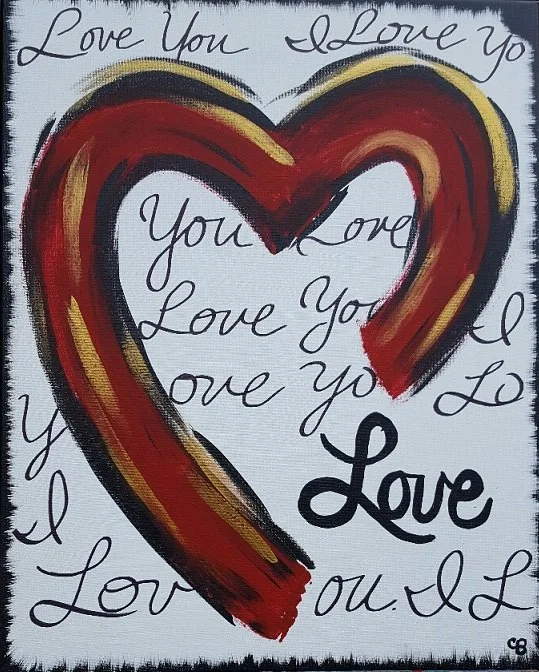 Love You I Love Yo
You Love
Love You I
ove Yo Lo
Y
Love
I
Lov ou. I L
CB